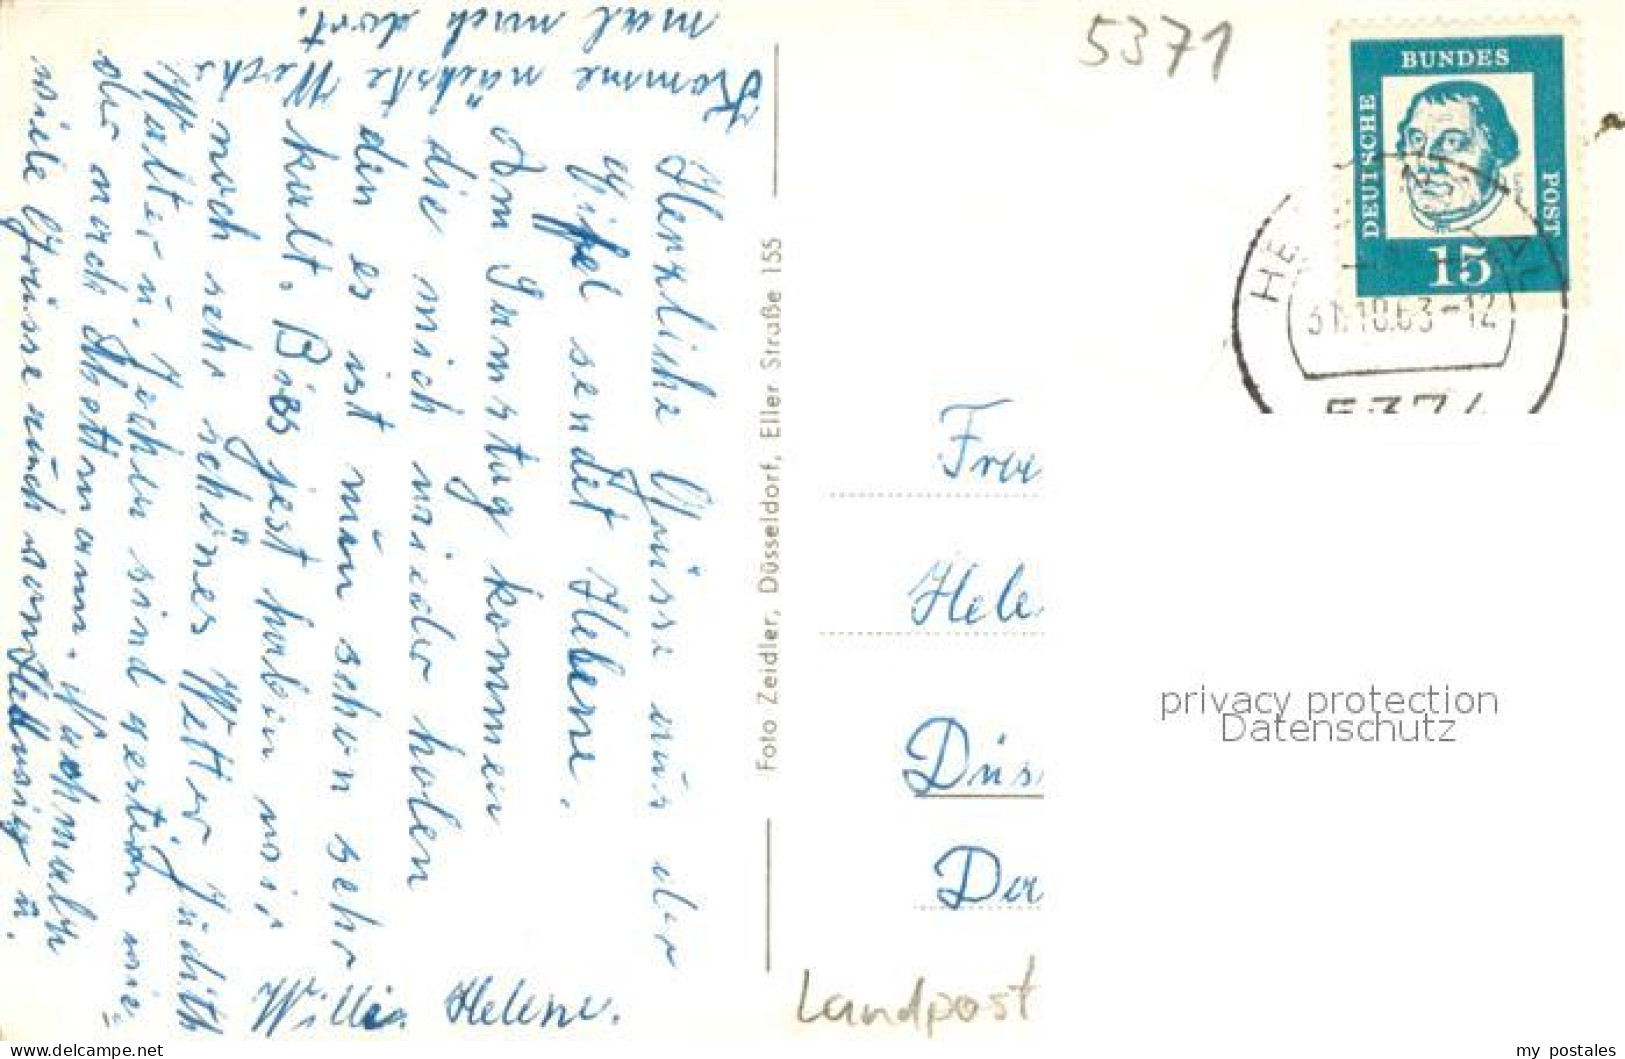 Herzliche Grüsse aus der
Eifel sendet Helene.
Am Samstag kommen
die mich wieder holen
den es ist nun schon sehr
kalt. Bis jest haben wir
noch sehr schönes Wetter Judith
Walter u. Jochen sind gestern wie-
der nach Nochmals
viele Grüsse auch von Hedwig u.
Willi. Helene.
Komme nächste Woche
mal nach dort.
Foto Zeidler, Düsseldorf, Eller Straße 155
5371
DEUTSCHE
BUNDES
POST
15
31.10.63-12
5374
Frau
Hele
Düs
Landpost
privacy protection
Datenschutz
my postales